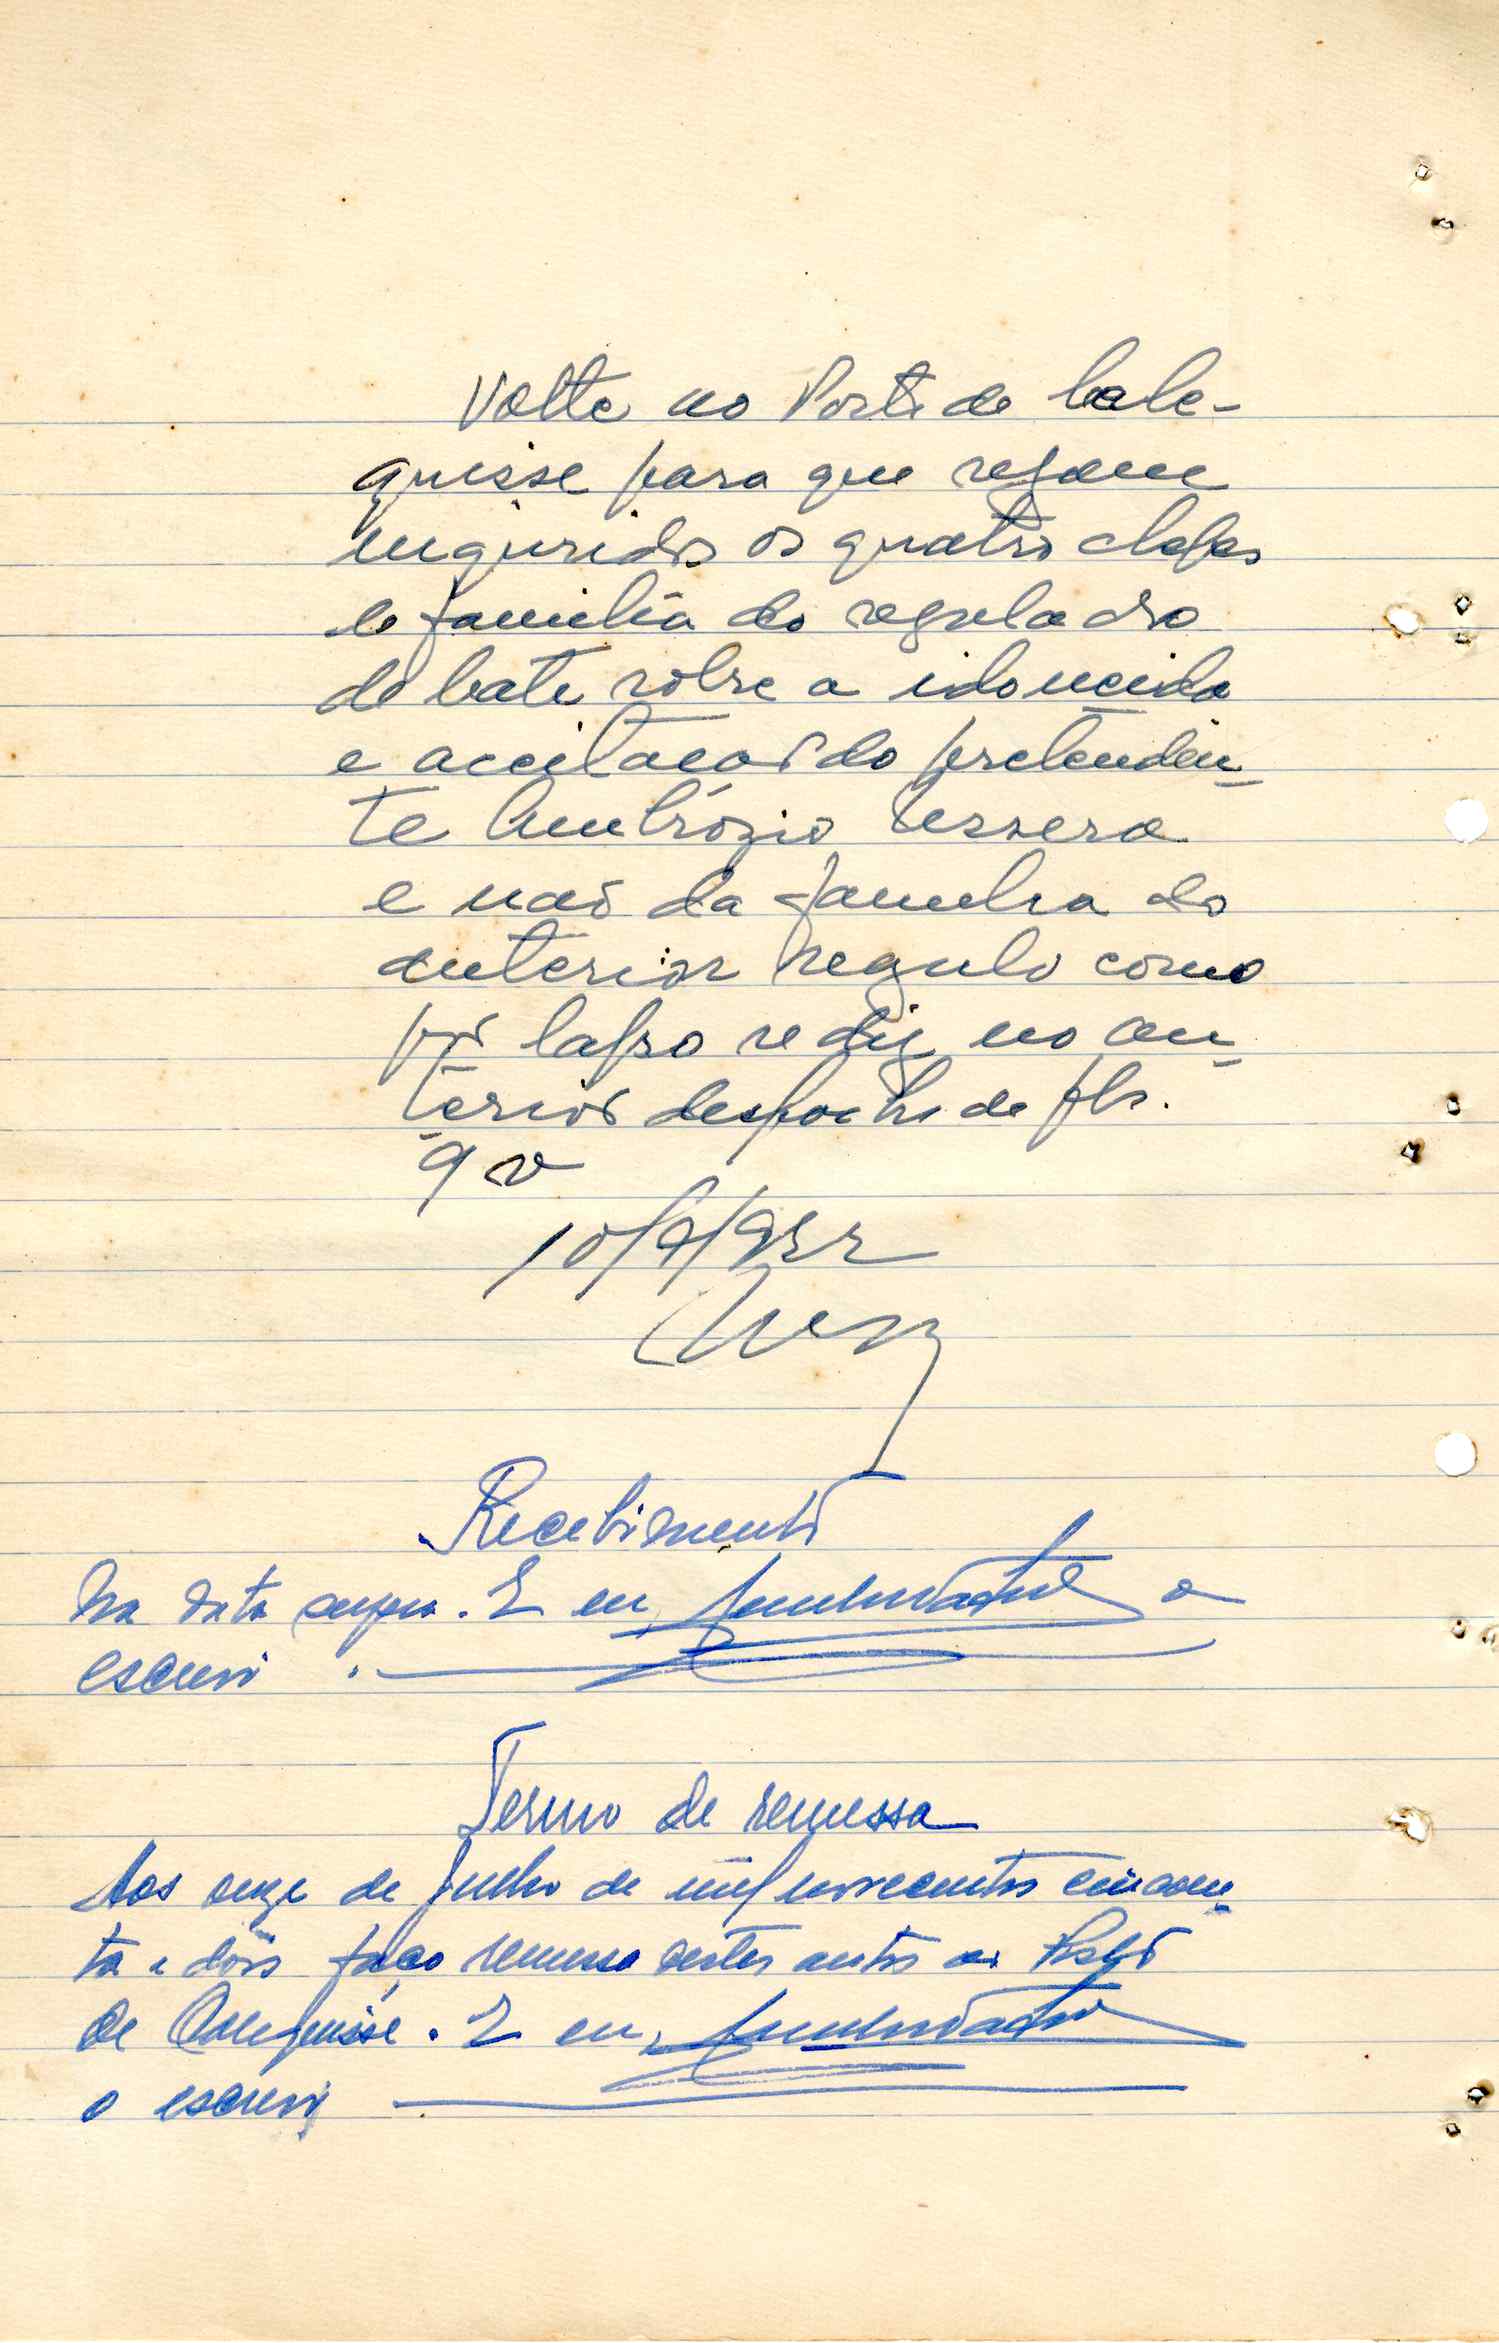 Volte ao Posto de Cale-
quisse para que sejam
inquiridos os quatro chefes
de familia do regulado
de Cati sôbre a idoneida
e aceitação do pretenden-
te Ambrózio
e não da familia do
anterior regulo como
por lapso se diz no an-
terior despacho de fls.
9 v
10/7/952
Recebimento
Na data supra. E eu, o
escrevi.
Termo de remessa
Aos onze de Julho de mil novecentos cincoen-
ta e dois faço remessa destes autos ao Posto
de Calequisse. E eu,
o escrevi